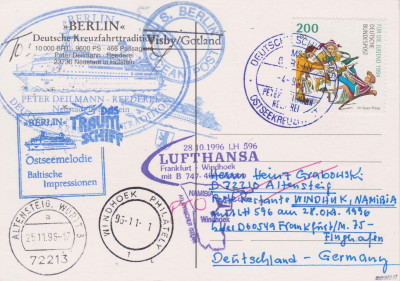 »BERLIN«
Deutsche Kreuzfahrttradition
10 000 BRT, 9600 PS, 466 Passagiere
Peter Deilmann - Reederei
23730 Neustadt in Holstein
Visby/Gotland
M.S. BERLIN
PETER DEILMANN - REEDEREI
»BERLIN«
DAS
TRAUM-
SCHIFF
Ostseemelodie
Baltische
Impressionen
DEUTSCHE
PETER DEILMANN
REEDEREI
OSTSEEKREUZFAHRT
200
FÜR DIE JUGEND 1994
DEUTSCHE
BUNDESPOST
28.10.1996 LH 596
LUFTHANSA
Frankfurt - Windhoek
mit B 747-400
NAMIBIA
Windhoek
Herrn Heinz Grabowski
D-72210 Altensteig
Postlagernd
Poste restante WINDHUK, NAMIBIA
mit LH 596 am 28. Okt. 1996
über D60549 Frankfurt/M. 75-
Flughafen
Deutschland - Germany
ALTENSTEIG, WÜRTT 3
a
25.11.96-17
72213
WINDHOEK PHILATELY
1